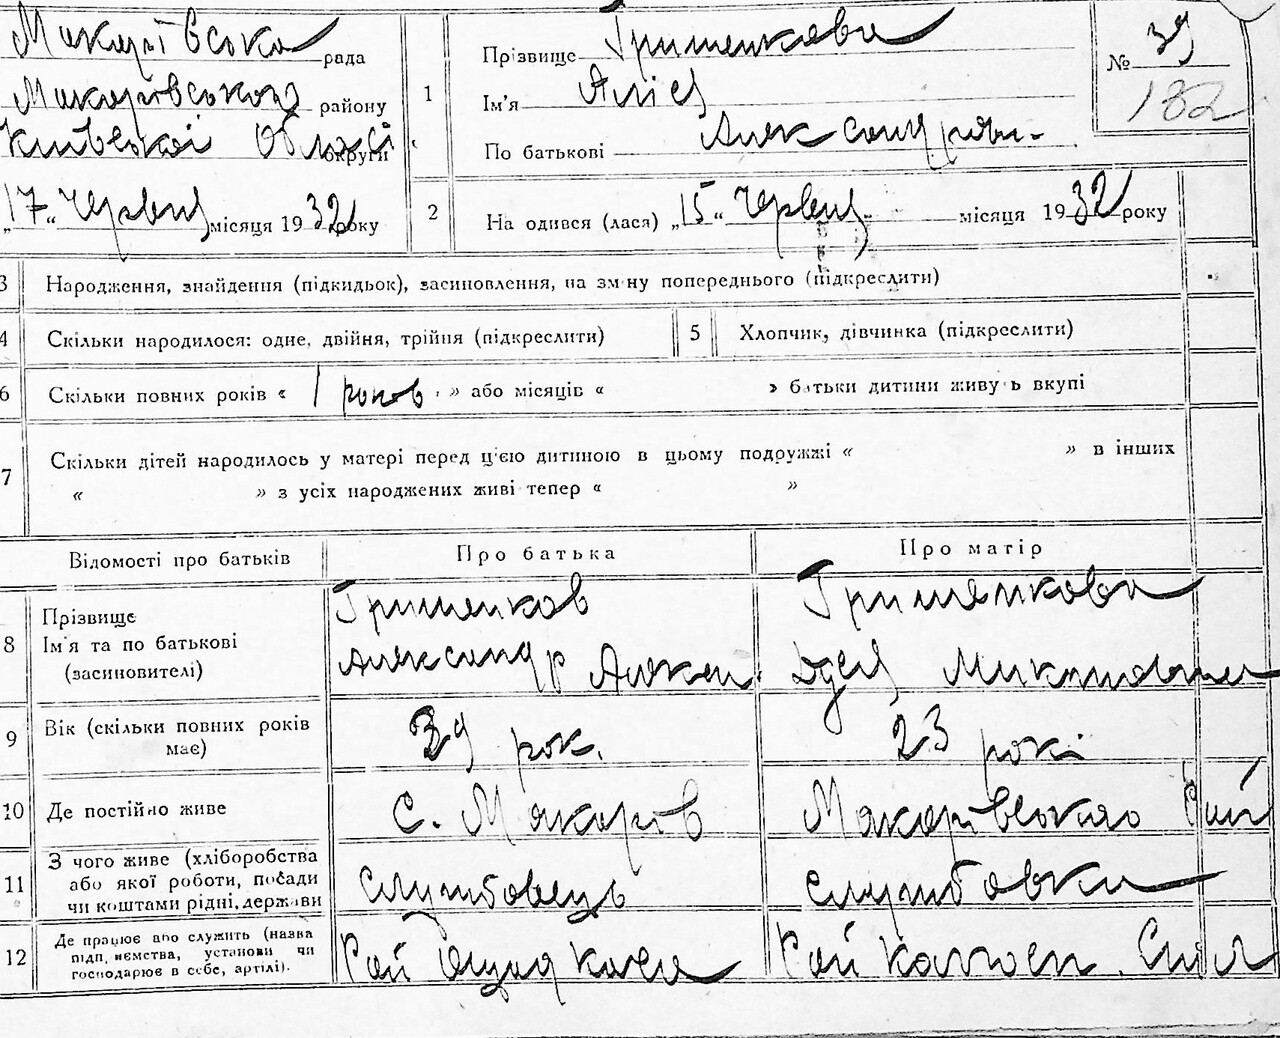 Макарівська рада
Макарівського району
Київської Області округи
„17“ Червня місяця 1932 року
1
Прізвище Гришенкова
Ім'я Аліса
По батькові Александрівн-
№ 39
132
2
На одився (лася) „15“ Червня місяця 1932 року
3 Народження, знайдення (підкидьок), засиновлення, на зм ну попереднього (підкреслити)
4 Скільки народилося: одне, двійня, трійня (підкреслити) 5 Хлопчик, дівчинка (підкреслити)
6 Скільки повних років « 1 роков » або місяців « » батьки дитини живу ь вкупі
7 Скільки дітей народилось у матері перед ц'єю дитиною в цьому подружжі « » в інших
« » з усіх народжених живі тепер « »
Відомості про батьків Про батька Про матір
8 Прізвище
Ім'я та по батькові
(засиновителі)
Гришенков
Александр Алексеи.
Гришенкова
9 Вік (скільки повних років
має)
39 рок.
23 рокі
10 Де постійно живе С. Макарів Макарівського Рай
11 З чого живе (хліборобства
або якої роботи, посади
чи коштами рідні, держави
Службовець
службовка
12 Де працює або служить (назва
підп, иємства, установи чи
господарює в себе, артілі).
Рай Ощад каса
Рай